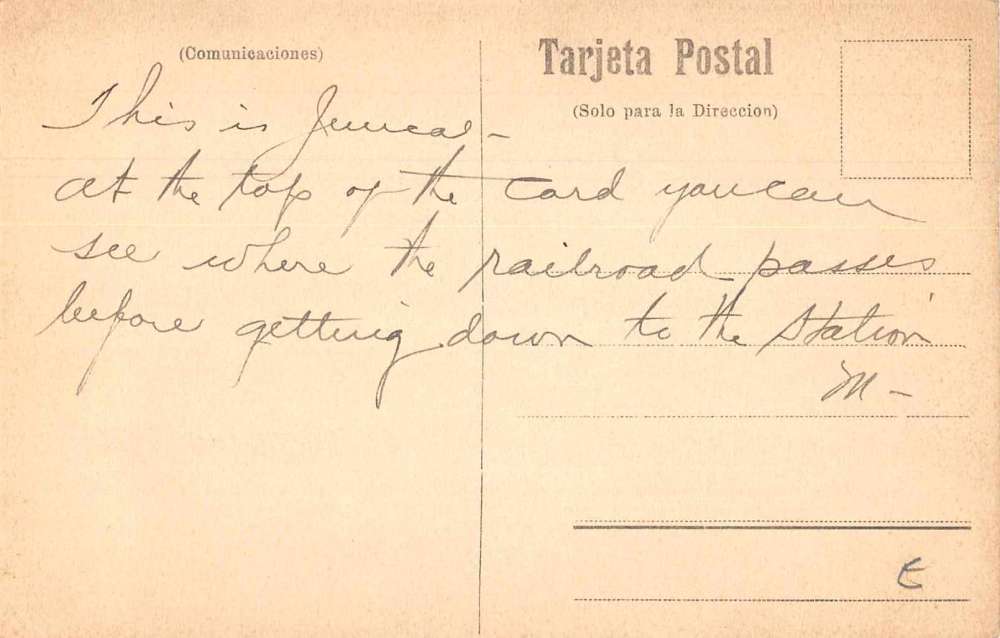 (Comunicaciones)
Tarjeta Postal
(Solo para la Direccion)
This is Juncal -
at the top of the card you can
see where the railroad passes
before getting down to the station
M -
E